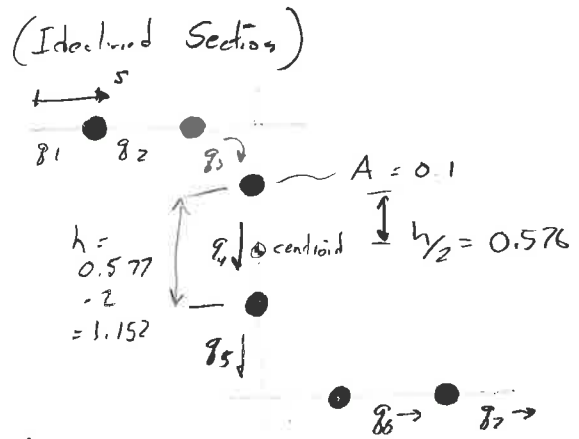 (Idealized Section)
s
q1 q2 q3
A = 0.1
h =
0.577
· 2
= 1.152
q4 centroid
h/2 = 0.576
q5
q6 → q7 →